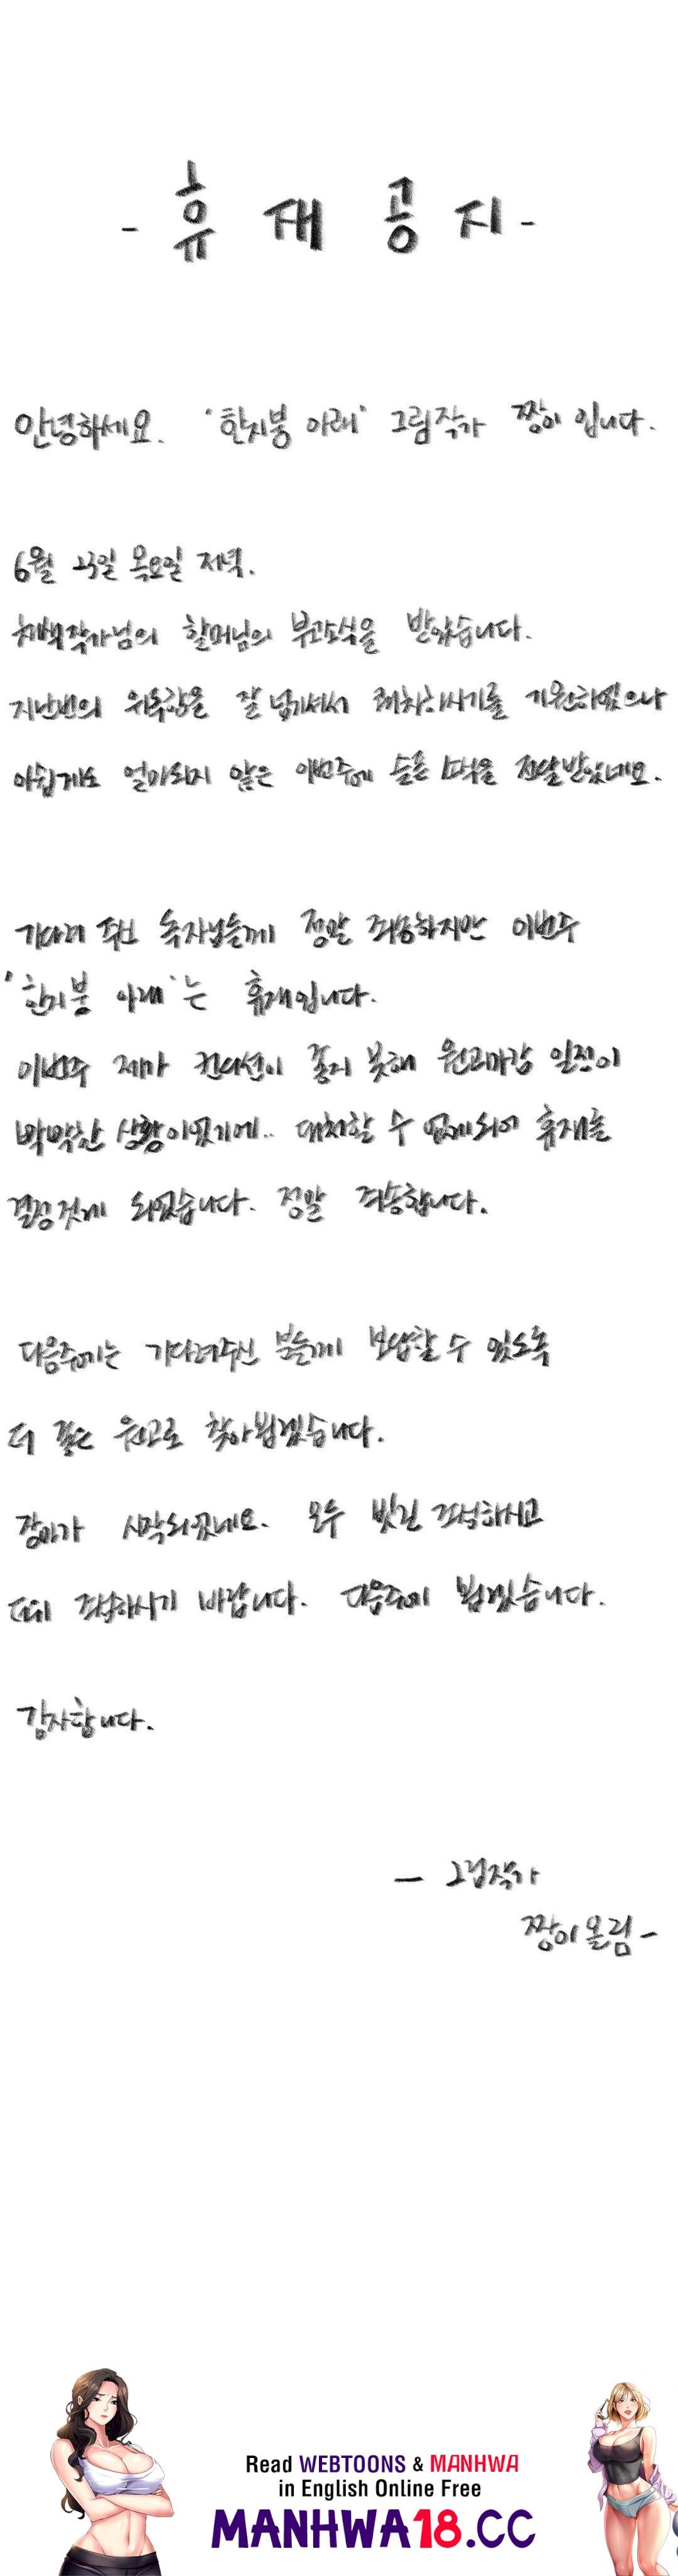 - 휴 재 공 지 -
안녕하세요. '한지붕 아래' 그림작가 짱이 입니다.
6월 23일 목요일 저녁.
작가님의 할머님의 부고소식을 받았습니다.
지난번의 위독함을 잘 넘기셔서 쾌차하시기를 기원하였으나
아쉽게도 얼마되지 않은 이번주에 슬픈 소식을 전달받았네요.
기다려 주신 독자님들께 정말 죄송하지만 이번주
'한지붕 아래'는 휴재입니다.
이번주 제가 컨디션이 좋지 못해 원고마감 일정이
빡빡한 상황이었기에.. 대처할 수 없게되어 휴재를
결정 짓게 되었습니다. 정말 죄송합니다.
다음주에는 기다려주신 분들께 보답할 수 있도록
더 좋은 원고로 찾아뵙겠습니다.
장마가 시작되었네요. 모두 빗길 조심하시고
조심하시기 바랍니다. 다음주에 뵙겠습니다.
감사합니다.
- 그림작가
짱이 올림 -
Read WEBTOONS & MANHWA
in English Online Free
MANHWA18.CC